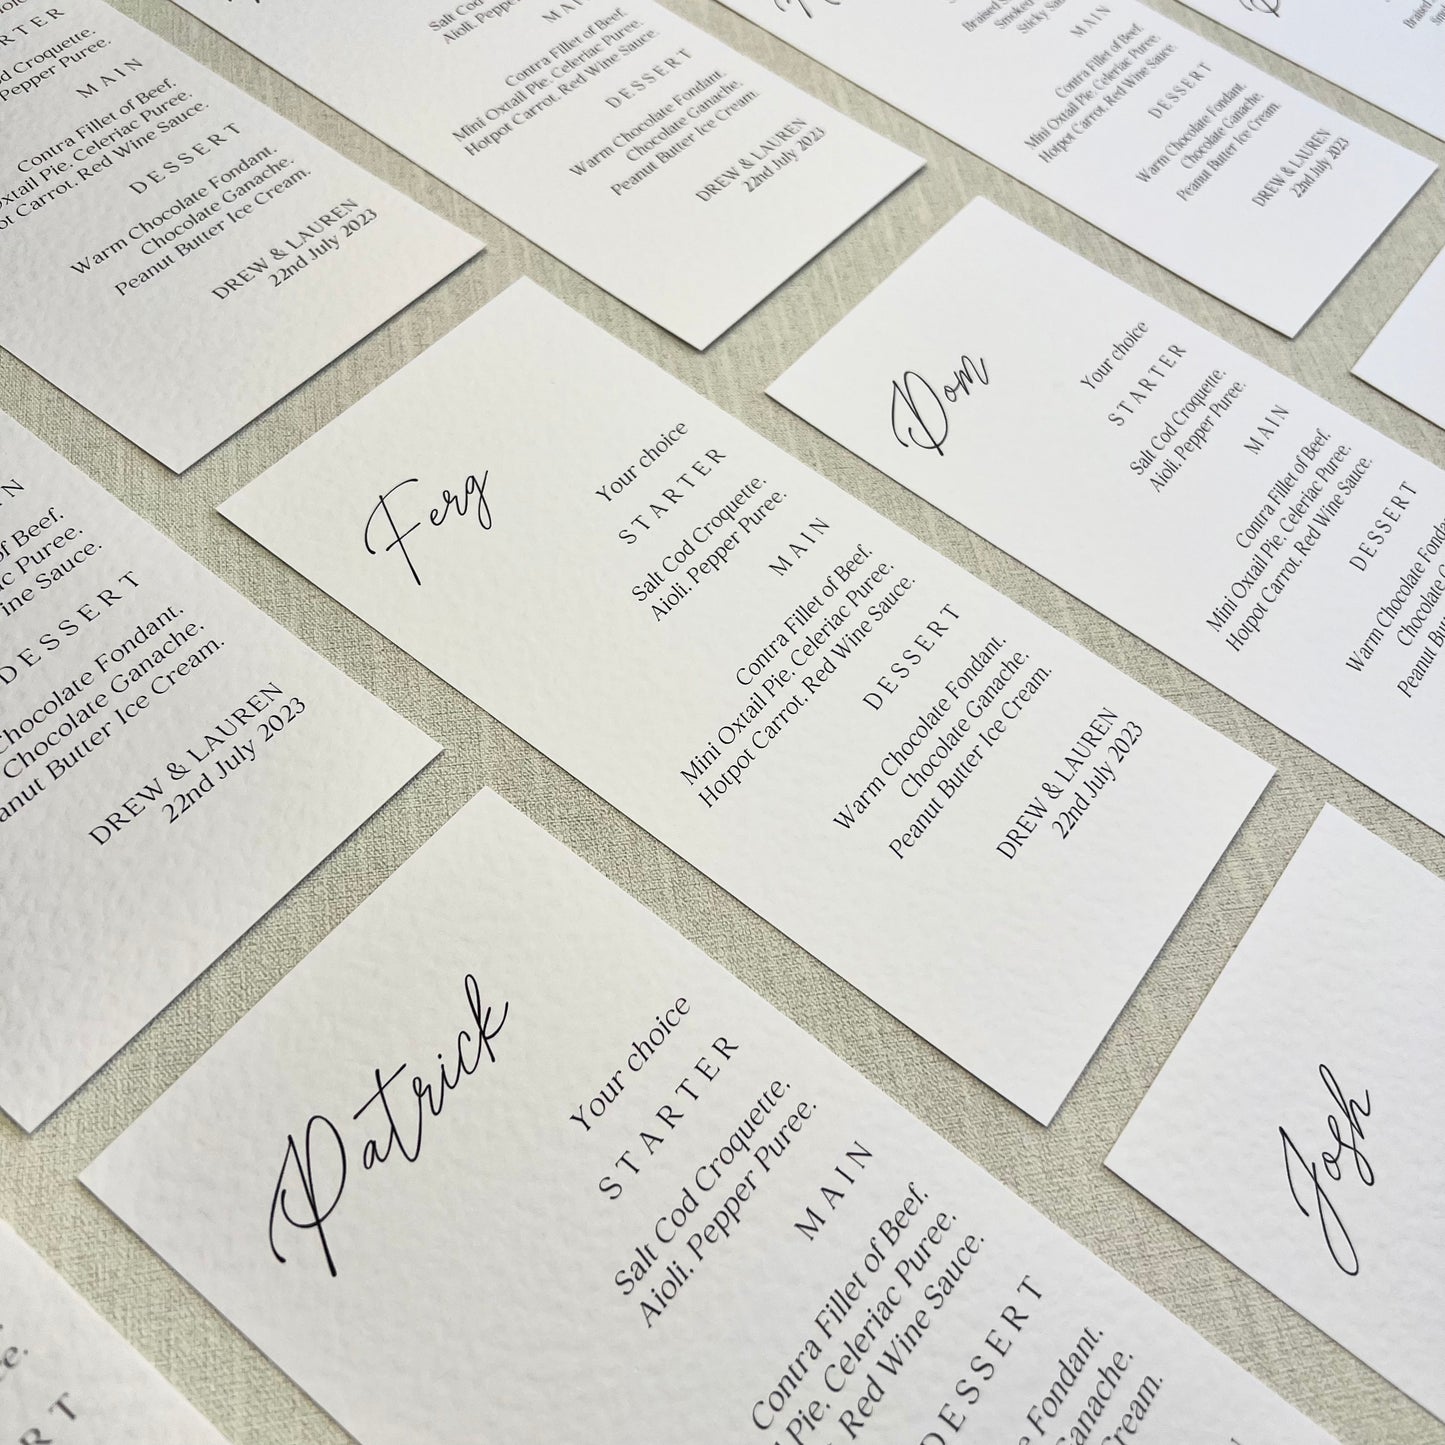 STARTER
Cod Croquette.
Pepper Puree.
MAIN
Contra Fillet of Beef.
Pie. Celeriac Puree.
Carrot. Red Wine Sauce.
DESSERT
Warm Chocolate Fondant.
Chocolate Ganache.
Peanut Butter Ice Cream.
DREW & LAUREN
22nd July 2023
Salt Cod Croquette.
Aioli. Pepper Puree.
MAIN
Contra Fillet of Beef.
Mini Oxtail Pie. Celeriac Puree.
Hotpot Carrot. Red Wine Sauce.
DESSERT
Warm Chocolate Fondant.
Chocolate Ganache.
Peanut Butter Ice Cream.
DREW & LAUREN
22nd July 2023
Braised
Smoked
Sticky
MAIN
Contra Fillet of Beef.
Mini Oxtail Pie. Celeriac Puree.
Hotpot Carrot. Red Wine Sauce.
DESSERT
Warm Chocolate Fondant.
Chocolate Ganache.
Peanut Butter Ice Cream.
DREW & LAUREN
22nd July 2023
Braised
of Beef.
Puree.
Wine Sauce.
DESSERT
Chocolate Fondant.
Chocolate Ganache.
Butter Ice Cream.
DREW & LAUREN
22nd July 2023
Ferg
Your choice
STARTER
Salt Cod Croquette.
Aioli. Pepper Puree.
MAIN
Contra Fillet of Beef.
Mini Oxtail Pie. Celeriac Puree.
Hotpot Carrot. Red Wine Sauce.
DESSERT
Warm Chocolate Fondant.
Chocolate Ganache.
Peanut Butter Ice Cream.
DREW & LAUREN
22nd July 2023
Dom
Your choice
STARTER
Salt Cod Croquette.
Aioli. Pepper Puree.
MAIN
Contra Fillet of Beef.
Mini Oxtail Pie. Celeriac Puree.
Hotpot Carrot. Red Wine Sauce.
DESSERT
Warm Chocolate
Chocolate
Peanut Butter
Patrick
Your choice
STARTER
Salt Cod Croquette.
Aioli. Pepper Puree.
MAIN
Contra Fillet of Beef.
Pie. Celeriac Puree.
Red Wine Sauce.
DESSERT
Fondant.
Ganache.
Cream.
Josh